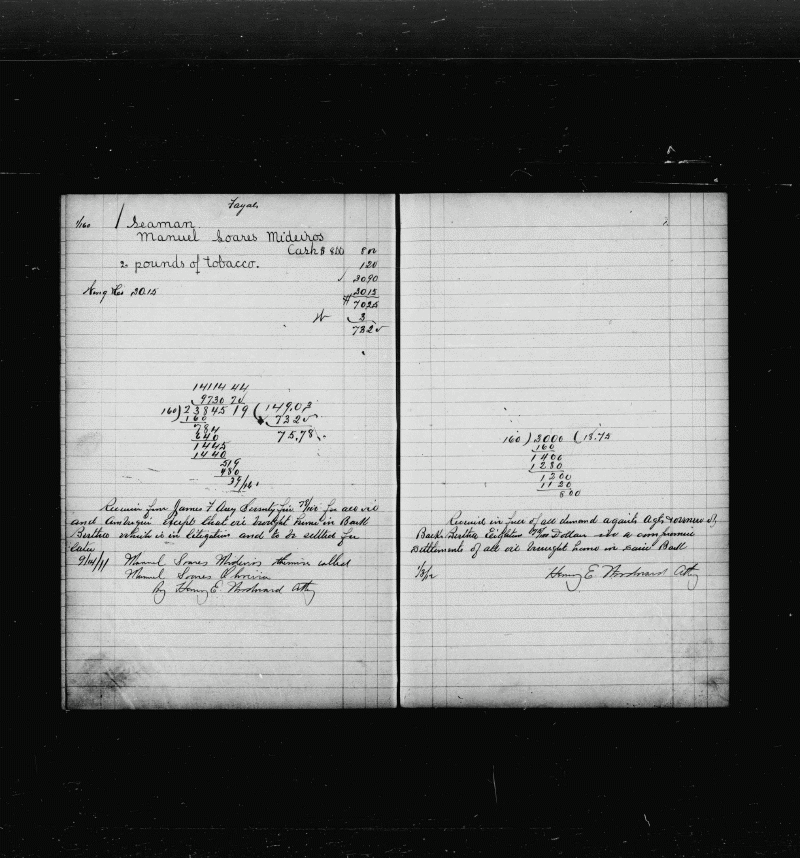 Fayal
1/160 1 Seaman
Manuel Soares Mideiros
Cash $ 8.00 8 00
2 pounds of tobacco. 1 20
√ 30 90
30 15
30.15
# 70 25
3
73 25
1411444
160 ) 23845 19 ( 149.03
160 73 25
784 75.78
640
1445
1440
519
480
39/160
Received from James F Avery Seventy five 78/100 for all oil
and ambergris except that oil brought home in Bark
Bertha which is in litigation and to be settled for
later
9/14/11 Manuel Soares Mideiros otherwise called
Manuel Soares Oliveira
By Henry E. Woodward Atty
2
160 ) 3000 ( 18.75
160
1400
1280
1200
1120
800
Received in full of all demand against Agts & owners of
Bark Bertha Eighteen 75/100 Dollars in a compromise
settlements of all oil brought home in said Bark
Henry E Woodward Atty